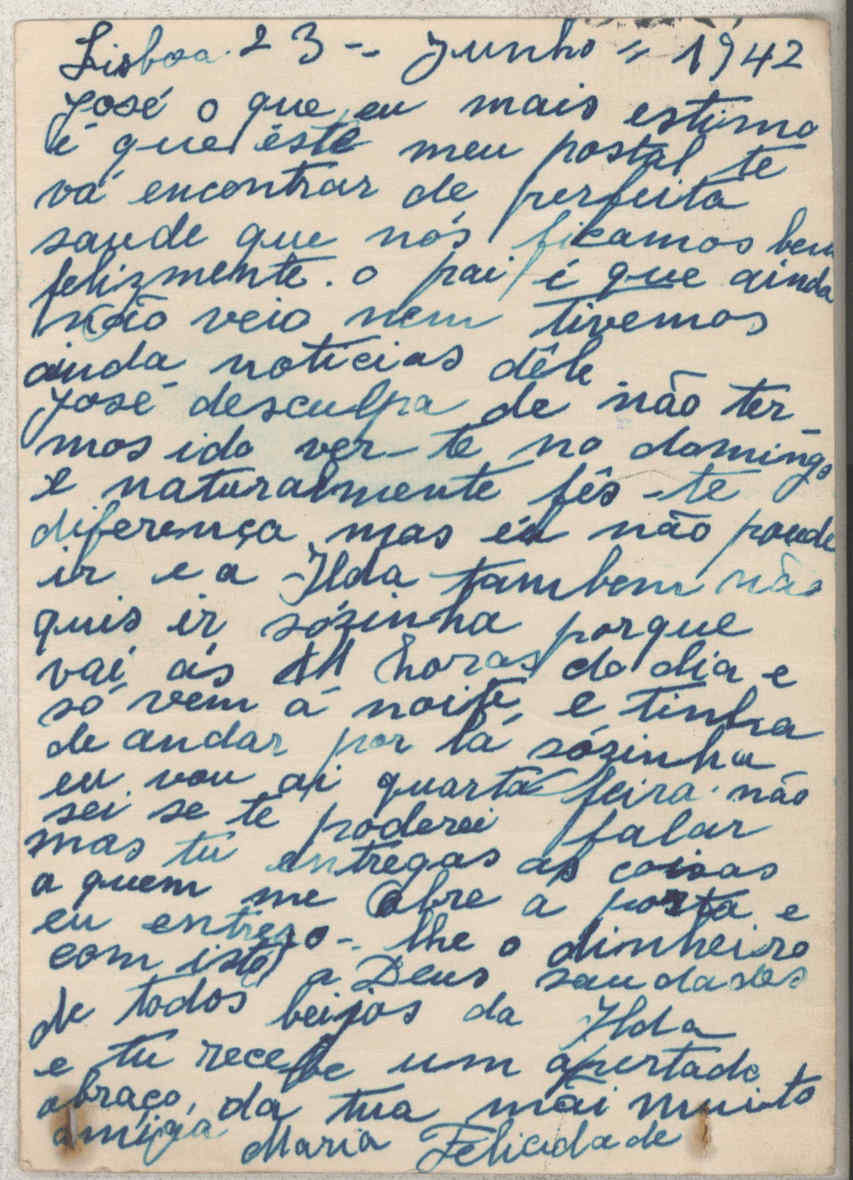 Lisboa 23 -- Junho = 1942
José o que eu mais estimo
é que êste meu postal te
vá encontrar de perfeita
saude que nós ficamos bem
felizmente. o pai é que ainda
não veio nem tivemos
ainda noticias dêle
José desculpa de não ter-
mos ido ver-te no domingo
e naturalmente fês-te
diferença mas eu não poude
ir e a Ilda tambem não
quis ir sósinha porque
vai ás 11 horas do dia e
só vem á noite e tinha
de andar por lá sósinha
eu vou ai quarta feira não
sei se te poderei falar
mas tu entregas as coisas
a quem me abre a porta e
eu entrego-lhe o dinheiro
com isto a Deus saudades
de todos beijos da Ilda
e tu recebe um apertado
abraço da tua mãi muito
amiga Maria Felicidade